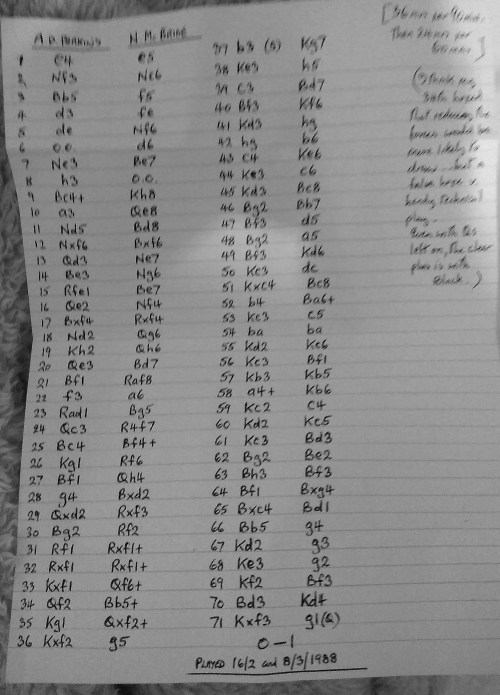 A.D. PERKINS N. McBRIDE
1 e4 e5
2 Nf3 Nc6
3 Bb5 f5
4 d3 fe
5 de Nf6
6 o.o. d6
7 Nc3 Be7
8 h3 o.o.
9 Bc4+ Kh8
10 a3 Qe8
11 Nd5 Bd8
12 Nxf6 Bxf6
13 Qd3 Ne7
14 Be3 Ng6
15 Rfe1 Be7
16 Qe2 Nf4
17 Bxf4 Rxf4
18 Nd2 Qg6
19 Kh2 Qh6
20 Qe3 Bd7
21 Bf1 Raf8
22 f3 a6
23 Rad1 Bg5
24 Qc3 R4f7
25 Bc4 Bf4+
26 Kg1 Rf6
27 Bf1 Qh4
28 g4 Bxd2
29 Qxd2 Rxf3
30 Bg2 Rf2
31 Rf1 Rxf1+
32 Rxf1 Rxf1+
33 Kxf1 Qf6+
34 Qf2 Bb5+
35 Kg1 Qxf2+
36 Kxf2 g5
37 b3 (s) Kg7
38 Ke3 h5
39 c3 Bd7
40 Bf3 Kf6
41 Kd3 hg
42 hg b6
43 c4 Ke6
44 Ke3 c6
45 Kd3 Bc8
46 Bg2 Bb7
47 Bf3 d5
48 Bg2 a5
49 Bf3 Kd6
50 Kc3 dc
51 Kxc4 Bc8
52 b4 Ba6+
53 Kc3 c5
54 ba ba
55 Kd2 Kc6
56 Kc3 Bf1
57 Kb3 Kb5
58 a4+ Kb6
59 Kc2 c4
60 Kd2 Kc5
61 Kc3 Bd3
62 Bg2 Be2
63 Bh3 Bf3
64 Bf1 Bxg4
65 Bxc4 Bd1
66 Bb5 g4
67 Kd2 g3
68 Ke3 g2
69 Kf2 Bf3
70 Bd3 Kd4
71 Kxf3 g1(Q)
0-1
PLAYED 16/2 and 8/3/1988
[36 min per 90 min,
Then
that reducing the
forces would be
more likely to
draw... but a
false hope v.
play.
Even with Qs
left on, the clear
plus is with
Black.)